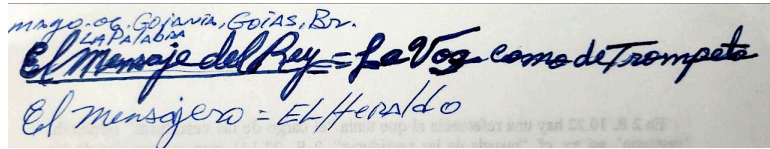 mayo.06.Goiania, Goias, Br.
LAPalabra
El Mensaje del Rey = La Voz como de Trompeta
El mensajero = EL HeRAldo